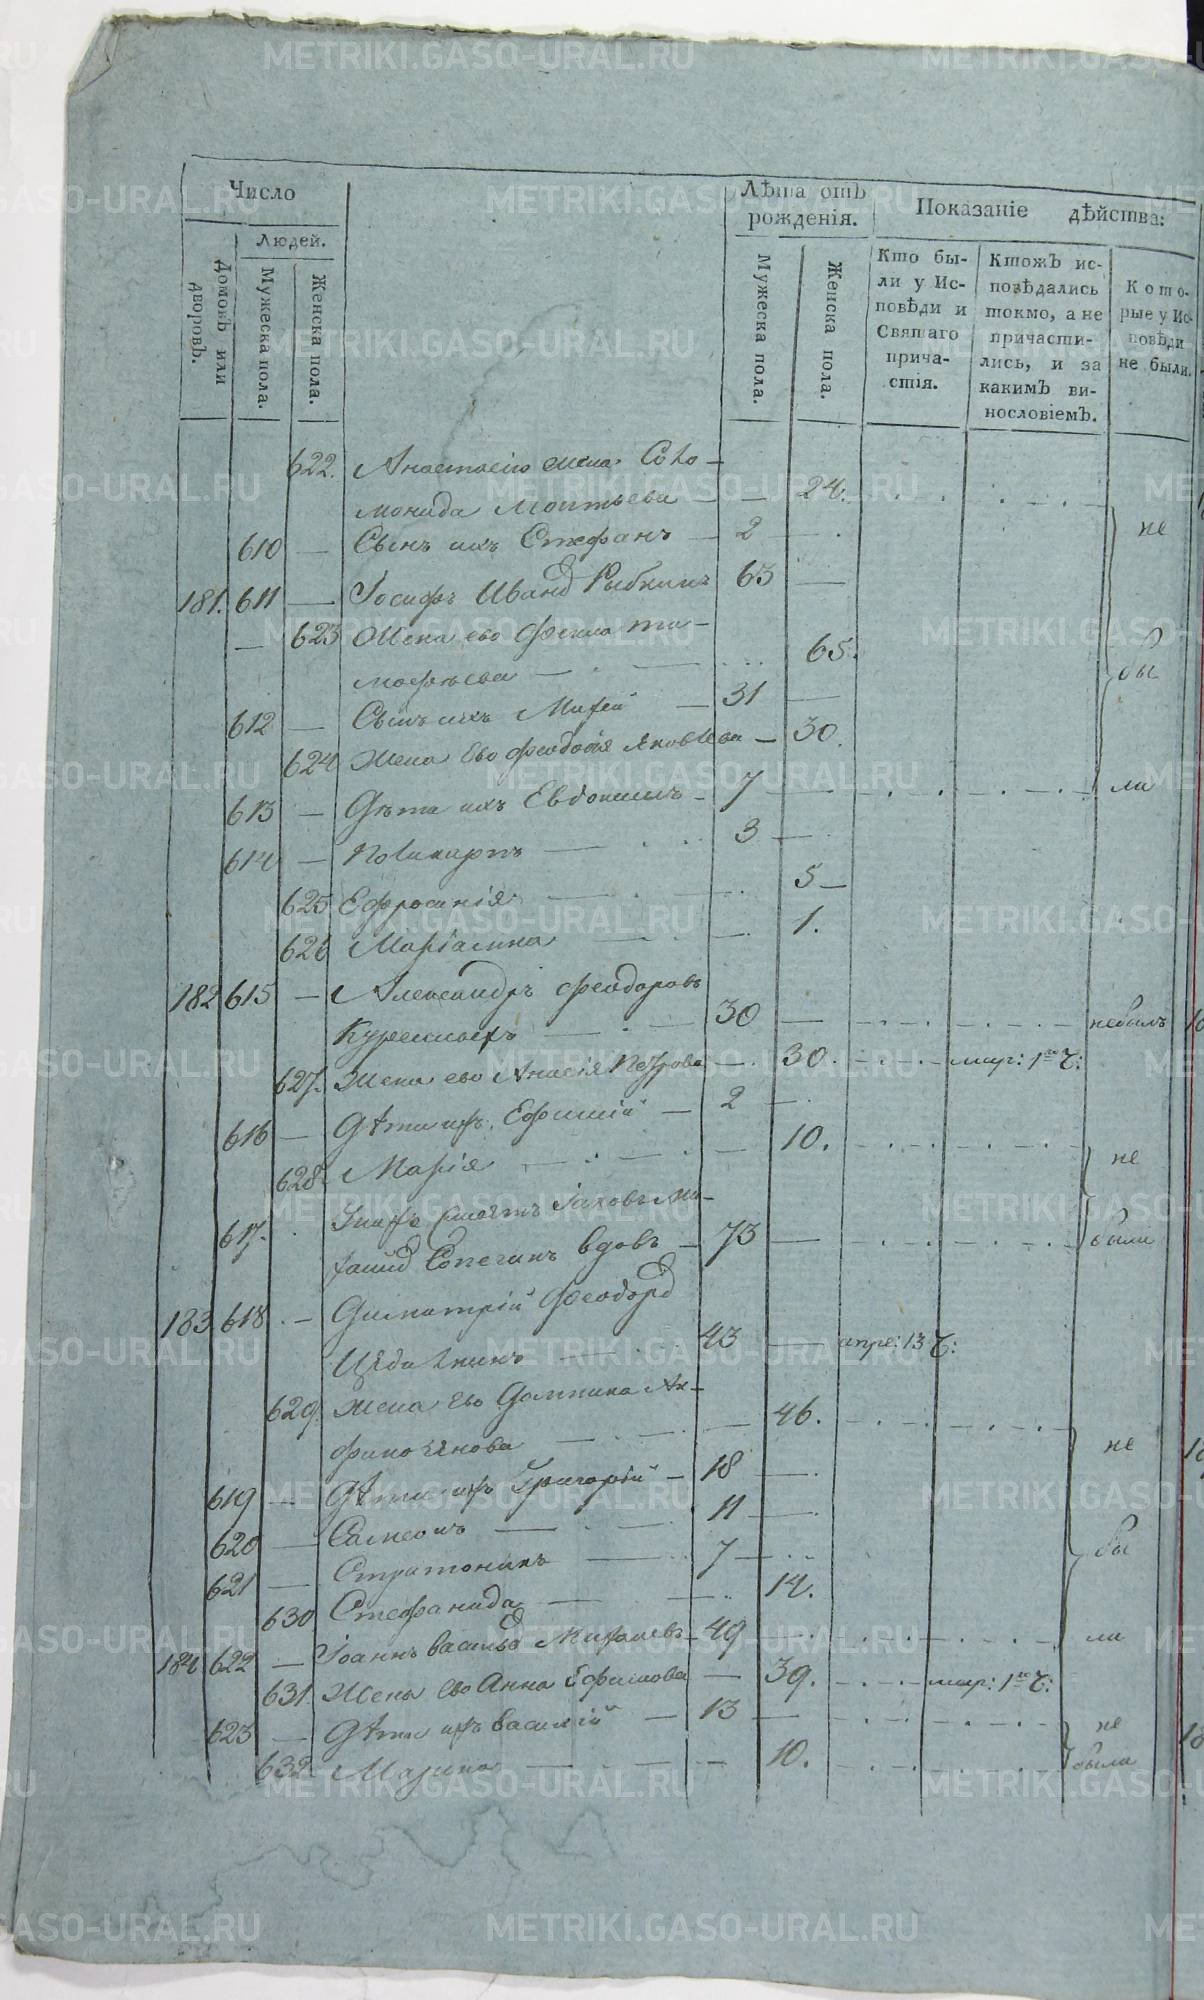 Число
Лѣта отъ рожденія.
Показаніе дѣйства:
Людей.
Домовъ или дворовъ.
Мужеска пола.
Женска пола.
Мужеска пола.
Женска пола.
Кто бы-
ли у Ис-
повѣди и
Святаго
прича-
стія.
Ктожъ ис-
повѣдались
токмо, а не
причасти-
лись, и за
какимъ ви-
нословіемъ.
Кото-
рые у Ис-
повѣди
не были.
622. Анастасію жена Соло-
монида — — 24.
610 — Сынъ ихъ Стефанъ — 2 — не
181. 611 — Іосифъ Иванд Рыбкинъ 63 —
623 Жена ево ти-
мофѣева — 65. бы
612 — Сынъ ихъ — 31 —
624 Жена Ево Феодосія Яковлева — 30.
613 — Дѣти ихъ Евдокимъ — 7 — ли
614 — Поликарпъ — 3 —
625 Ефросинія — 5 —
626 Маріамна — 1.
182 615 — Александръ Феодоровъ
— 30 — небылъ
627. Жена ево Петрова — 30. — мар: 1го Ч:
616 — Дѣти ихъ Ефимій — 2 —
628. Марія — 10. не
617. Іаковъ
вдовъ — 73 — были
183 618. — Димитрій Феодорд
— 43 — апре: 13 Ч:
629. Жена Ево Домника
— 46. не
619 — Дѣти ихъ Григорій — 18 —
620 — Симеонъ — 11 —
621 — Стратоникъ — 7 — бы
630 Стефанида — 14.
184 622 — Іоаннъ Васильд — 49 — ли
631. Жена Ево Анна Ефимова — 39. — мар: 1го Ч:
623 — Дѣти ихъ Василій — 13 — не
632. Марина — 10. были
METRIKI.GASO-URAL.RU